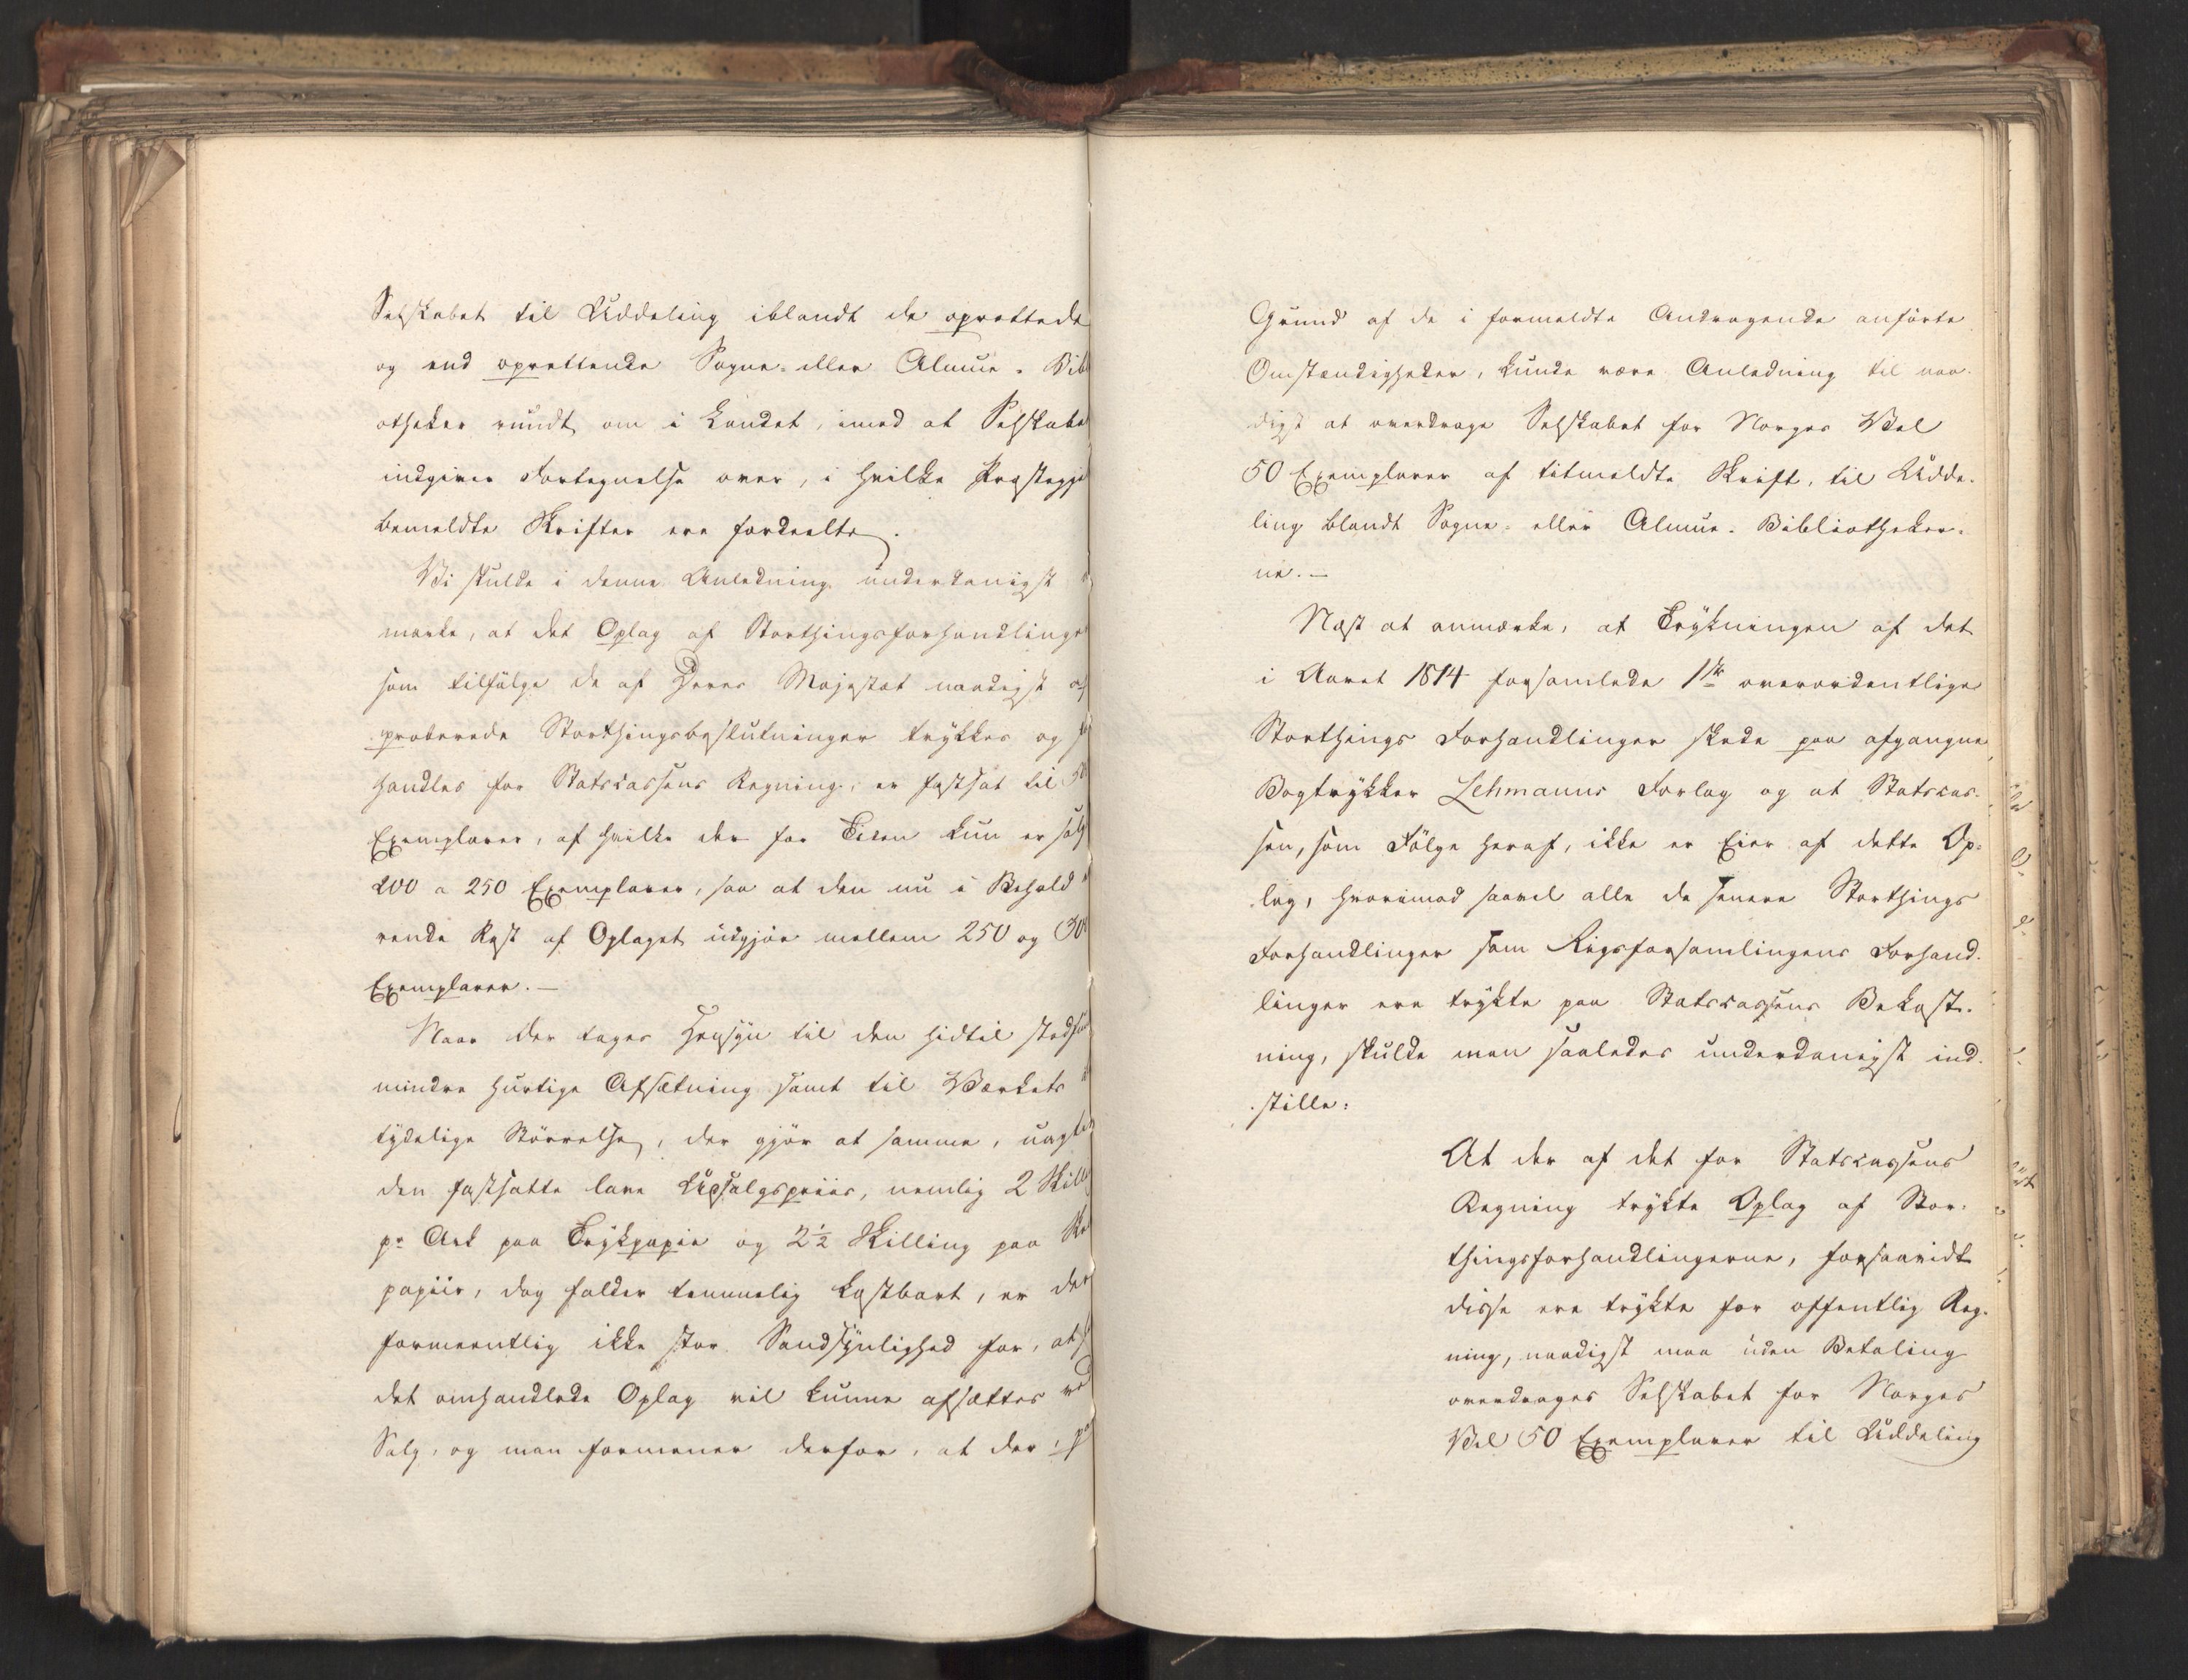 Selskabet til Uddeling iblandt de oprettede
og end oprettende Sogne- eller Almue-Bib
otheker rundt om i Landet, imod at Selskabe
indgiver Fortegnelse over, i hvilke Præstegje
bemeldte Skrifter ere fordeelte.
Vi skulde i denne Anledning underdanigst
mærke, at det Oplag af Storthingsforhandlinge
som tilfølge de af Deres Majestæt naadigst ap
proberede Storthingsbeslutninger trykkes og fo
handles for Statscassens Regning, er fastsat til 50
Exemplarer, af hvilke der for Tiden kun er solg
200 a 250 Exemplarer, saa at den nu i Behold
rende Rest af Oplaget udgjør mellem 250 og 30
Exemplarer. —
Naar der tages Hensyn til den hidtil stedfun
mindre hurtige Afsætning samt til Værkets
tydelige Størrelse, der gjør at samme, uagte
den fastsatte lave Udsalgspriis, nemlig 2 Skill
pr Ark paa Trykpapir og 2½ Skilling paa Skr
papiir, dog falder temmelig kostbart, er der
formeentlig ikke stor Sandsynlighed for, at
det omhandlede Oplag vil kunne afsættes ved
Salg, og man formener derfor, at der, p
Grund af de i formeldte Andragende anførte
Omstændigheder, kunde være Anledning til naa-
digst at overdrage Selskabet for Norges Vel
50 Exemplarer af titmeldte Skrift, til Udde-
ling blandt Sogne- eller Almue-Bibliotheker-
ne. —
Næst at anmærke, at Trykningen af det
i Aaret 1814 forsamlede 1ste overordentlige
Storthings Forhandlinger skede paa afgangne
Bogtrykker Lehmanns Forlag og at Statscas-
sen, som Følge heraf, ikke er Eier af dette Op-
lag, hvorimod saavel alle de senere Storthings
Forhandlinger som Rigsforsamlingens Forhand-
linger ere trykte paa Statscassens Bekost-
ning, skulde man saaledes underdanigst ind-
stille:
At der af det for Statscassens
Regning trykte Oplag af Stor-
thingsforhandlingerne, forsaavidt
disse ere trykte for offentlig Reg-
ning, naadigst maa uden Betaling
overdrages Selskabet for Norges
Vel 50 Exemplarer til Uddeling